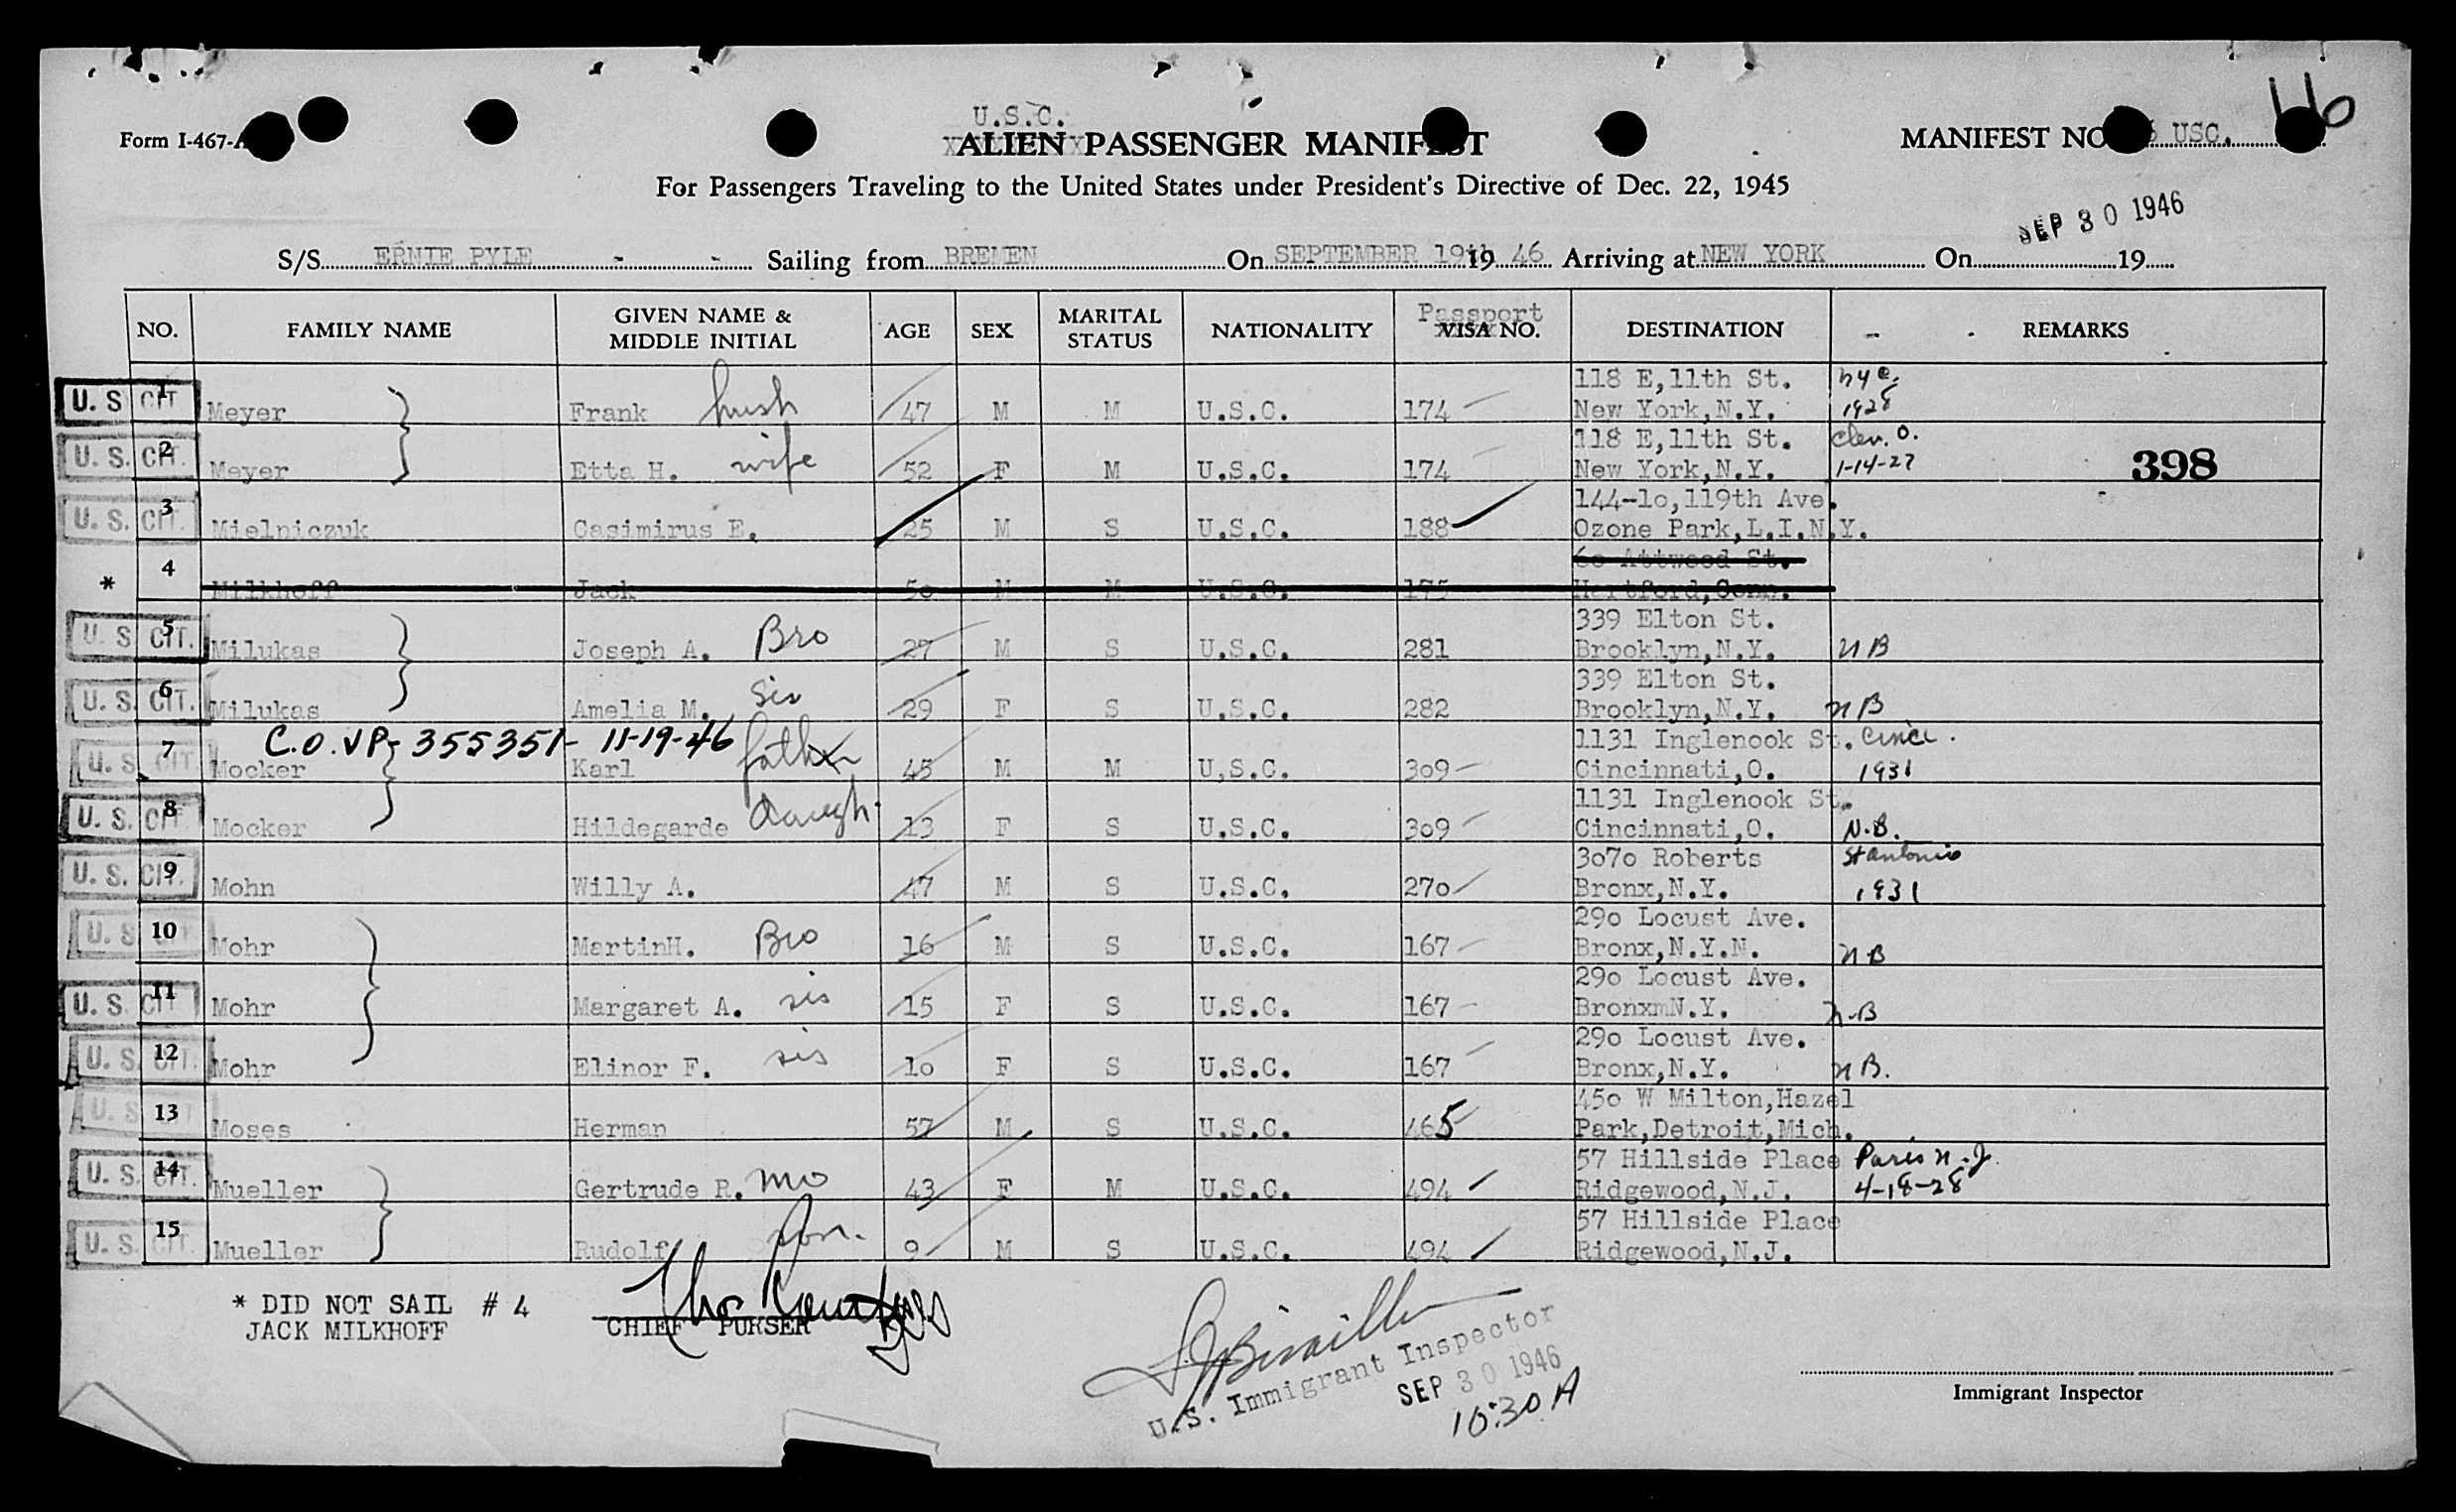 U.S.C.
Form I-467-A
ALIEN PASSENGER MANIFEST
MANIFEST NO. USC.
For Passengers Traveling to the United States under President's Directive of Dec. 22, 1945
SEP 30 1946
S/S ERNIE PYLE - - Sailing from BREMEN On SEPTEMBER 19th 19 46 Arriving at NEW YORK On 19
NO. FAMILY NAME GIVEN NAME & MIDDLE INITIAL AGE SEX MARITAL STATUS NATIONALITY Passport VISA NO. DESTINATION REMARKS
U.S CIT 1 Meyer Frank husb 47 M M U.S.C. 174 118 E,11th St. New York,N.Y. nyc. 1928
U.S. CIT. 2 Meyer Etta H. wife 52 F M U.S.C. 174 118 E,11th St. New York,N.Y. Clev. O. 1-14-27
398
U.S. CIT. 3 Mielniczuk Casimirus E. 25 M S U.S.C. 188 144-1o,119th Ave. Ozone Park,L.I.N.Y.
* 4 Milkhoff Jack 5o M M U.S.C. 175 6o Attwood St. Hartford,Conn.
U.S CIT. 5 Milukas Joseph A. Bro 27 M S U.S.C. 281 339 Elton St. Brooklyn,N.Y. NB
U.S. CIT. 6 Milukas Amelia M. Sis 29 F S U.S.C. 282 339 Elton St. Brooklyn,N.Y. NB
C.O. VP- 355351- 11-19-46
U.S. CIT 7 Mocker Karl father 45 M M U,S.C. 3o9 1131 Inglenook St. Cincinnati,O. Cinci. 1931
U.S. CIT 8 Mocker Hildegarde daugh. 13 F S U.S.C. 3o9 1131 Inglenook St. Cincinnati,O. N.B.
U.S. CIT. 9 Mohn Willy A. 47 M S U.S.C. 27o 3o7o Roberts Bronx,N.Y. St Antonio 1931
U.S CIT 10 Mohr MartinH. Bro 16 M S U.S.C. 167 29o Locust Ave. Bronx,N.Y.N. NB
U.S. CIT 11 Mohr Margaret A. sis 15 F S U.S.C. 167 29o Locust Ave. BronxmN.Y. N.B
U.S CIT. 12 Mohr Elinor F. sis 1o F S U.S.C. 167 29o Locust Ave. Bronx,N.Y. NB.
U.S CIT 13 Moses Herman 57 M S U.S.C. 465 45o W Milton,Hazel Park,Detroit,Mich.
U.S. CIT. 14 Mueller Gertrude R. Mo 43 F M U.S.C. 494 57 Hillside Place Ridgewood,N.J. N.J. 4-18-28
U.S. CIT. 15 Mueller Rudolf son. 9 M S U.S.C. 494 57 Hillside Place Ridgewood,N.J.
* DID NOT SAIL # 4
JACK MILKHOFF
CHIEF PURSER
U.S. Immigrant Inspector
SEP 30 1946
10:30 A
Immigrant Inspector